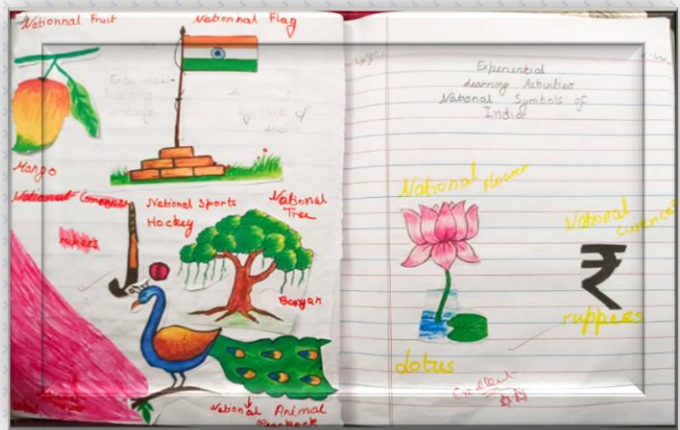 Nationnal Fruit
Nationnal Flag
Mango
National
National Sports
Hockey
rupees
National
Tree
Banyan
National Animal
Peacock
Experiential
Learning Activities
National Symbols of
India
National flower
Lotus
National
Currency
₹
ruppees
Excellent